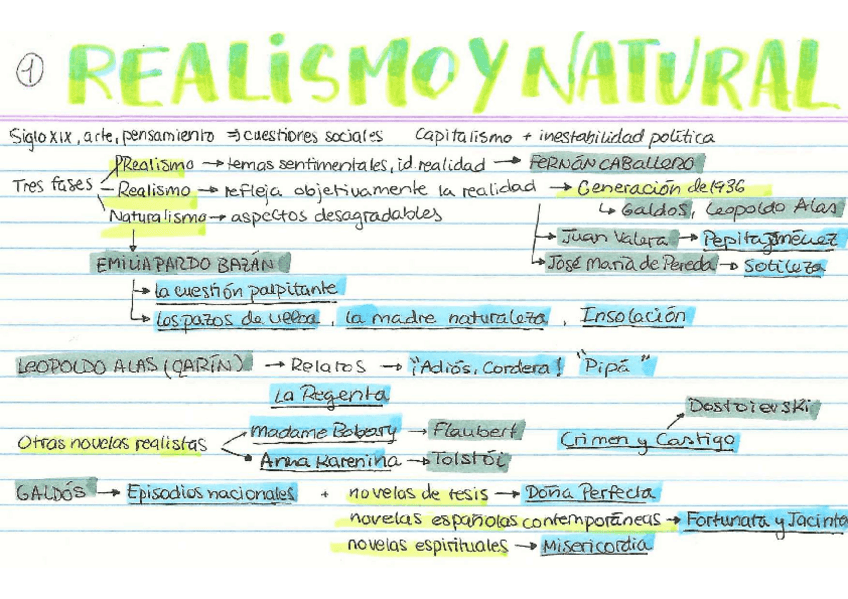 1 REALISMO Y NATURAL
Siglo XIX, arte, pensamiento ⇒ cuestiones sociales Capitalismo + inestabilidad política
Tres fases
PRealismo → temas sentimentales, id. realidad → FERNÁN CABALLERO
Realismo → refleja objetivamente la realidad → Generación de 1936
↳ Galdós, Leopoldo Alas
Naturalismo → aspectos desagradables
Juan Valera → Pepita Jiménez
José María de Pereda → Sotileza
EMILIA PARDO BAZÁN
la cuestión palpitante
los pazos de Ulloa, la madre naturaleza, Insolación
LEOPOLDO ALAS (CLARÍN) → Relatos → "¡Adiós, Cordera!" "Pipá"
La Regenta
Dostoievski
Otras novelas realistas
Madame Bobary → Flaubert
Crimen y Castigo
Anna Karenina → Tolstói
GALDÓS → Episodios nacionales + novelas de tesis → Doña Perfecta
novelas españolas contemporáneas → Fortunata y Jacinta
novelas espirituales → Misericordia